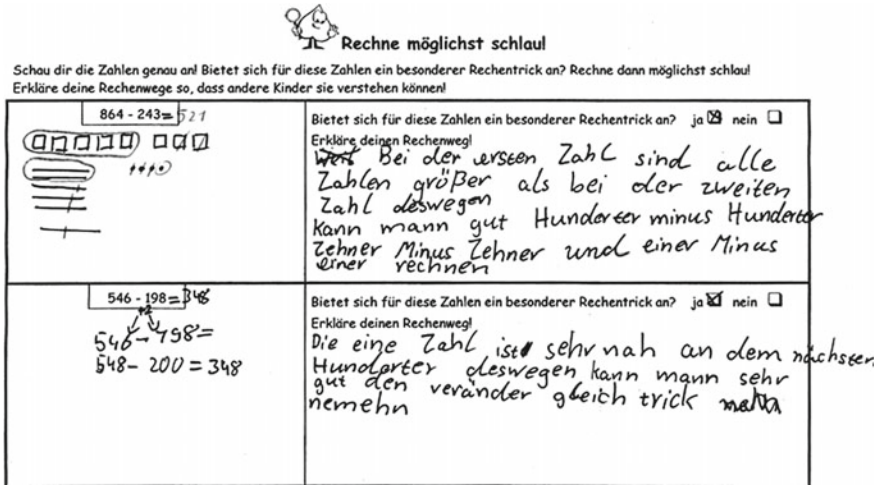 Rechne möglichst schlau!
Schau dir die Zahlen genau an! Bietet sich für diese Zahlen ein besonderer Rechentrick an? Rechne dann möglichst schlau!
Erkläre deine Rechenwege so, dass andere Kinder sie verstehen können!
864 - 243= 521
Bietet sich für diese Zahlen ein besonderer Rechentrick an? ja ☒ nein ☐
Erkläre deinen Rechenweg!
Bei der ersten Zahl sind alle
Zahlen größer als bei der zweiten
Zahl deswegen
kann mann gut Hunderter minus Hunderter
Zehner Minus Zehner und einer Minus
einer rechnen
546 - 198 = 348
+2
546 - 198 =
548 - 200 = 348
Bietet sich für diese Zahlen ein besonderer Rechentrick an? ja ☒ nein ☐
Erkläre deinen Rechenweg!
Die eine Zahl ist sehr nah an dem nächsten
Hunderter deswegen kann mann sehr
gut den veränder gleich trick
nemehn